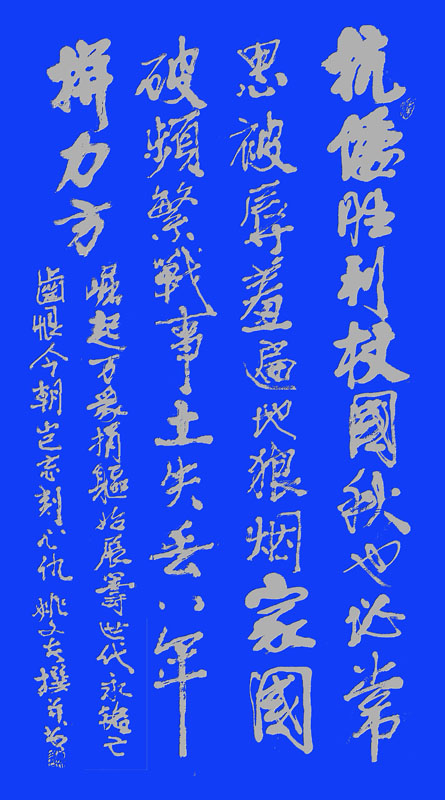 抗倭胜利杖國秋也必常
思被辱羞遍地狼烟家國
破頻繁戰事土失丢八年
拼力方
崛起万眾捐軀始展籌世代永亡
恨今朝豈忘刻心仇姚文撰并書